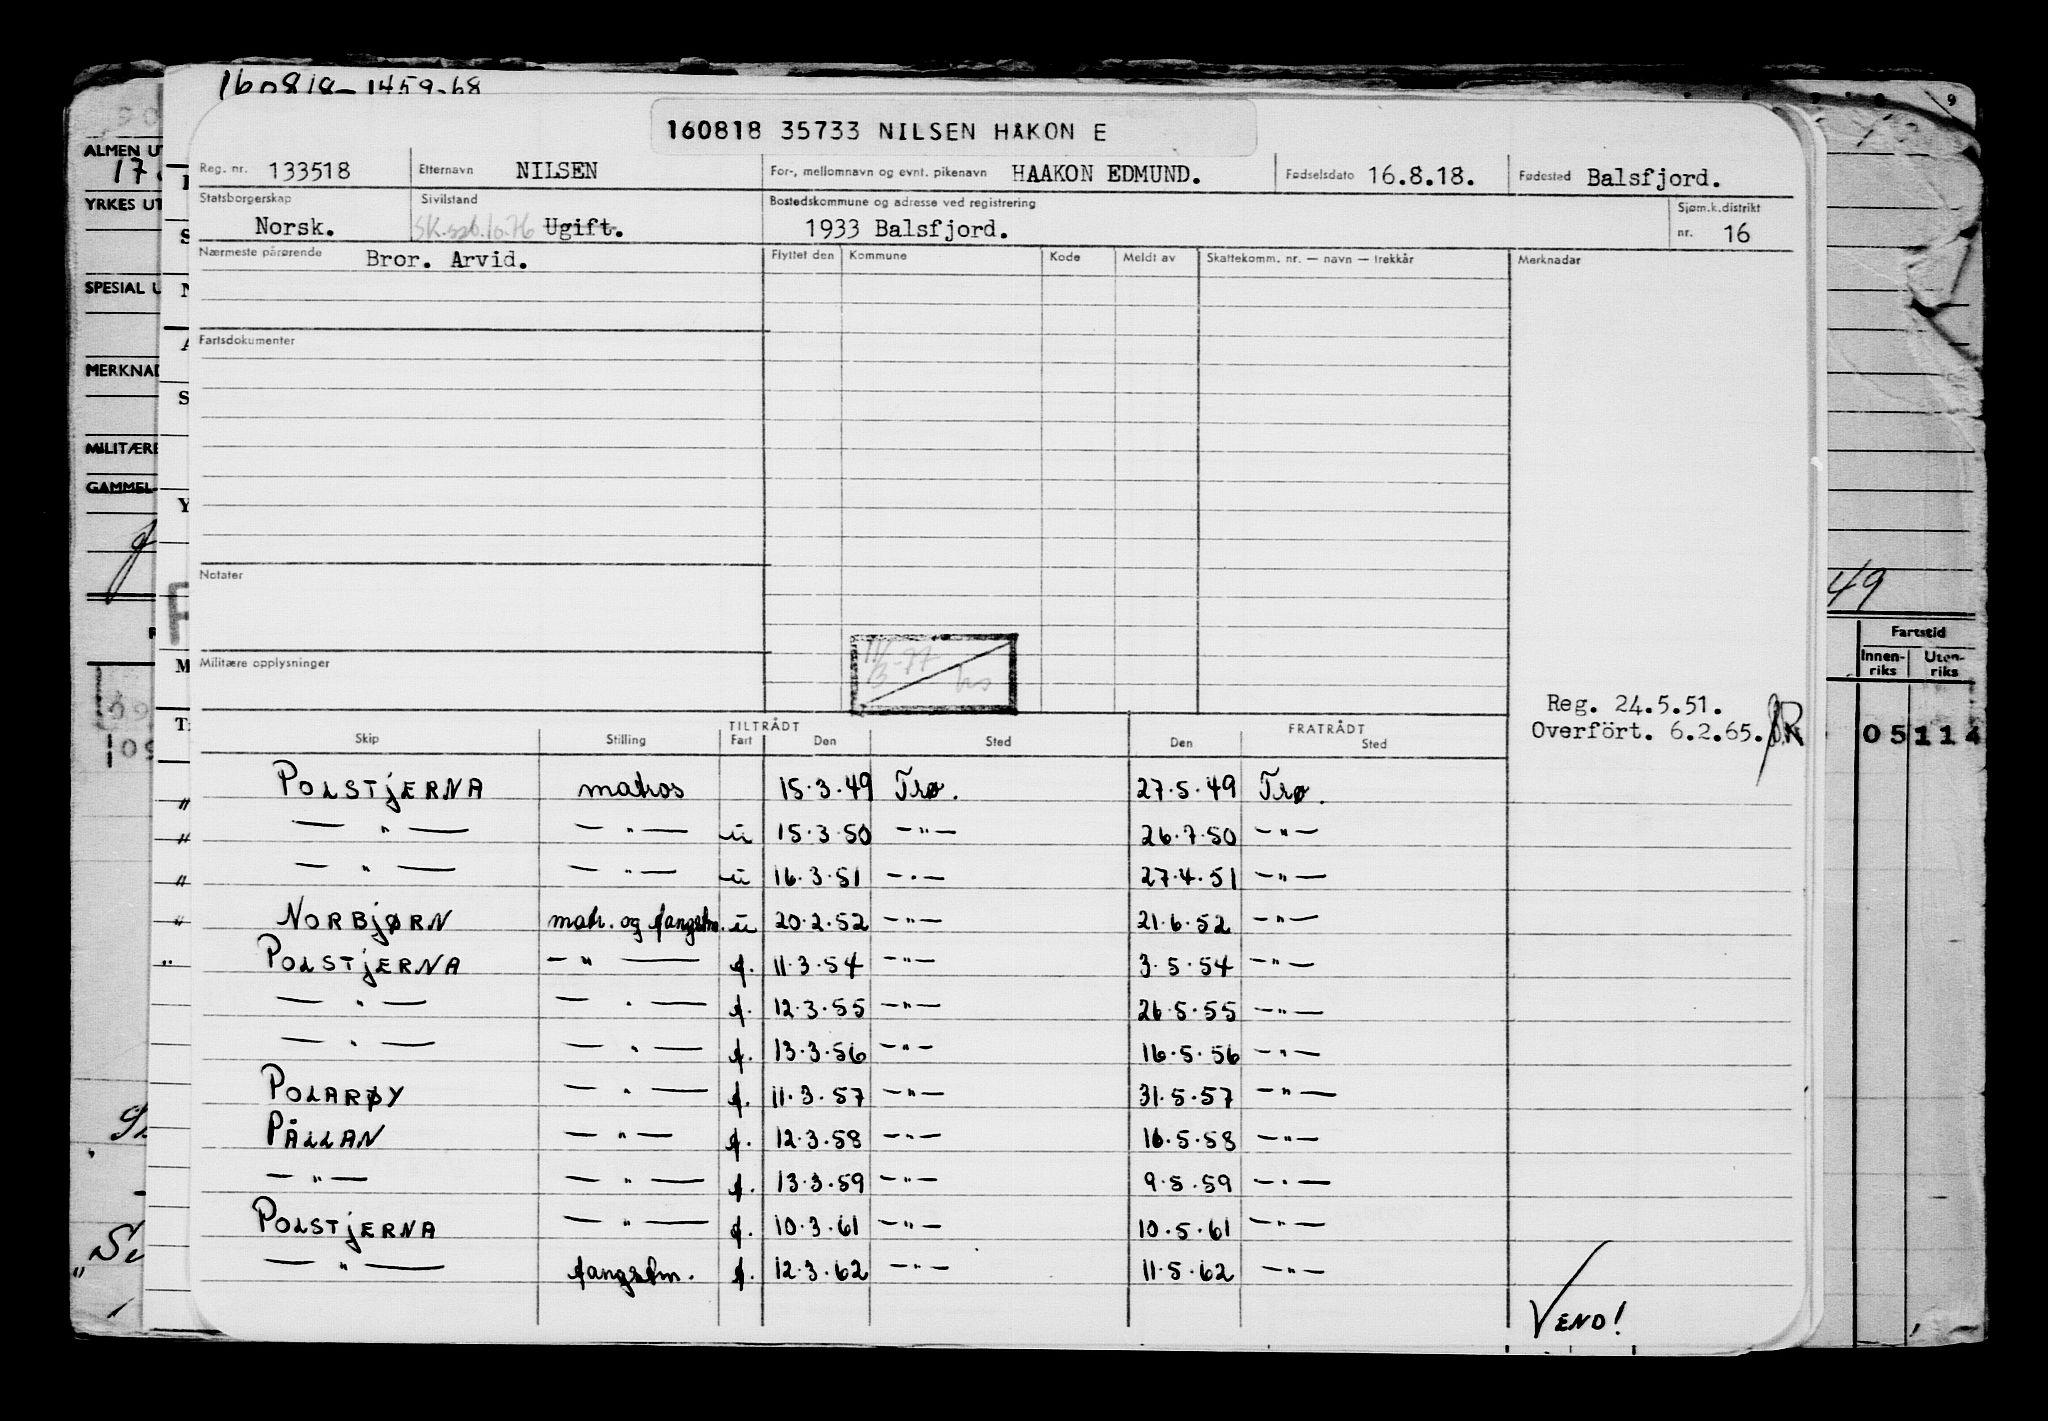 160818-1459-68
160818 35733 NILSEN HÅKON E
Reg. nr. 133518 Etternavn NILSEN For-, mellomnavn og evnt. pikenavn HAAKON EDMUND. Fødselsdato 16.8.18. Fødested Balsfjord.
Statsborgerskap Sivilstand Bostedskommune og adresse ved registrering Sjøm.k.distrikt
Norsk. Ugift. 1933 Balsfjord. nr. 16
Nærmeste pårørende Bror. Arvid. Flyttet den Kommune Kode Meldt av Skattekomm. nr. — navn — trekkår Merknadar
Fartsdokumenter
Notater
Militære opplysninger
Reg. 24.5.51.
Overfört. 6.2.65.
TILTRÅDT FRATRÅDT
Skip Stilling Fart Den Sted Den Sted
POLSTJERNA matros 15.3.49 Trø. 27.5.49 Trø.
" — " — — " — u 15.3.50 — " — 26.7.50 — " —
" — " — — " — u 16.3.51 — " — 27.4.51 — " —
" NORBJØRN matr. og fangstm. u 20.2.52 — " — 21.6.52 — " —
" POLSTJERNA — " — f. 11.3.54 — " — 3.5.54 — " —
— " — — " — f. 12.3.55 — " — 26.5.55 — " —
— " — — " — f. 13.3.56 — " — 16.5.56 — " —
POLARØY — " — f. 11.3.57 — " — 31.5.57 — " —
PÅLLAN — " — f. 12.3.58 — " — 16.5.58 — " —
— " — — " — f. 13.3.59 — " — 9.5.59 — " —
POLSTJERNA — " — f. 10.3.61 — " — 10.5.61 — " —
— " — fangstm. f. 12.3.62 — " — 11.5.62 — " —
VEND!
ALMEN UT
YRKES UT
SPESIAL U
MERKNAD
MILITÆRE
GAMMEL
9
49
Fartstid
Innen-riks Uten-riks
05 114